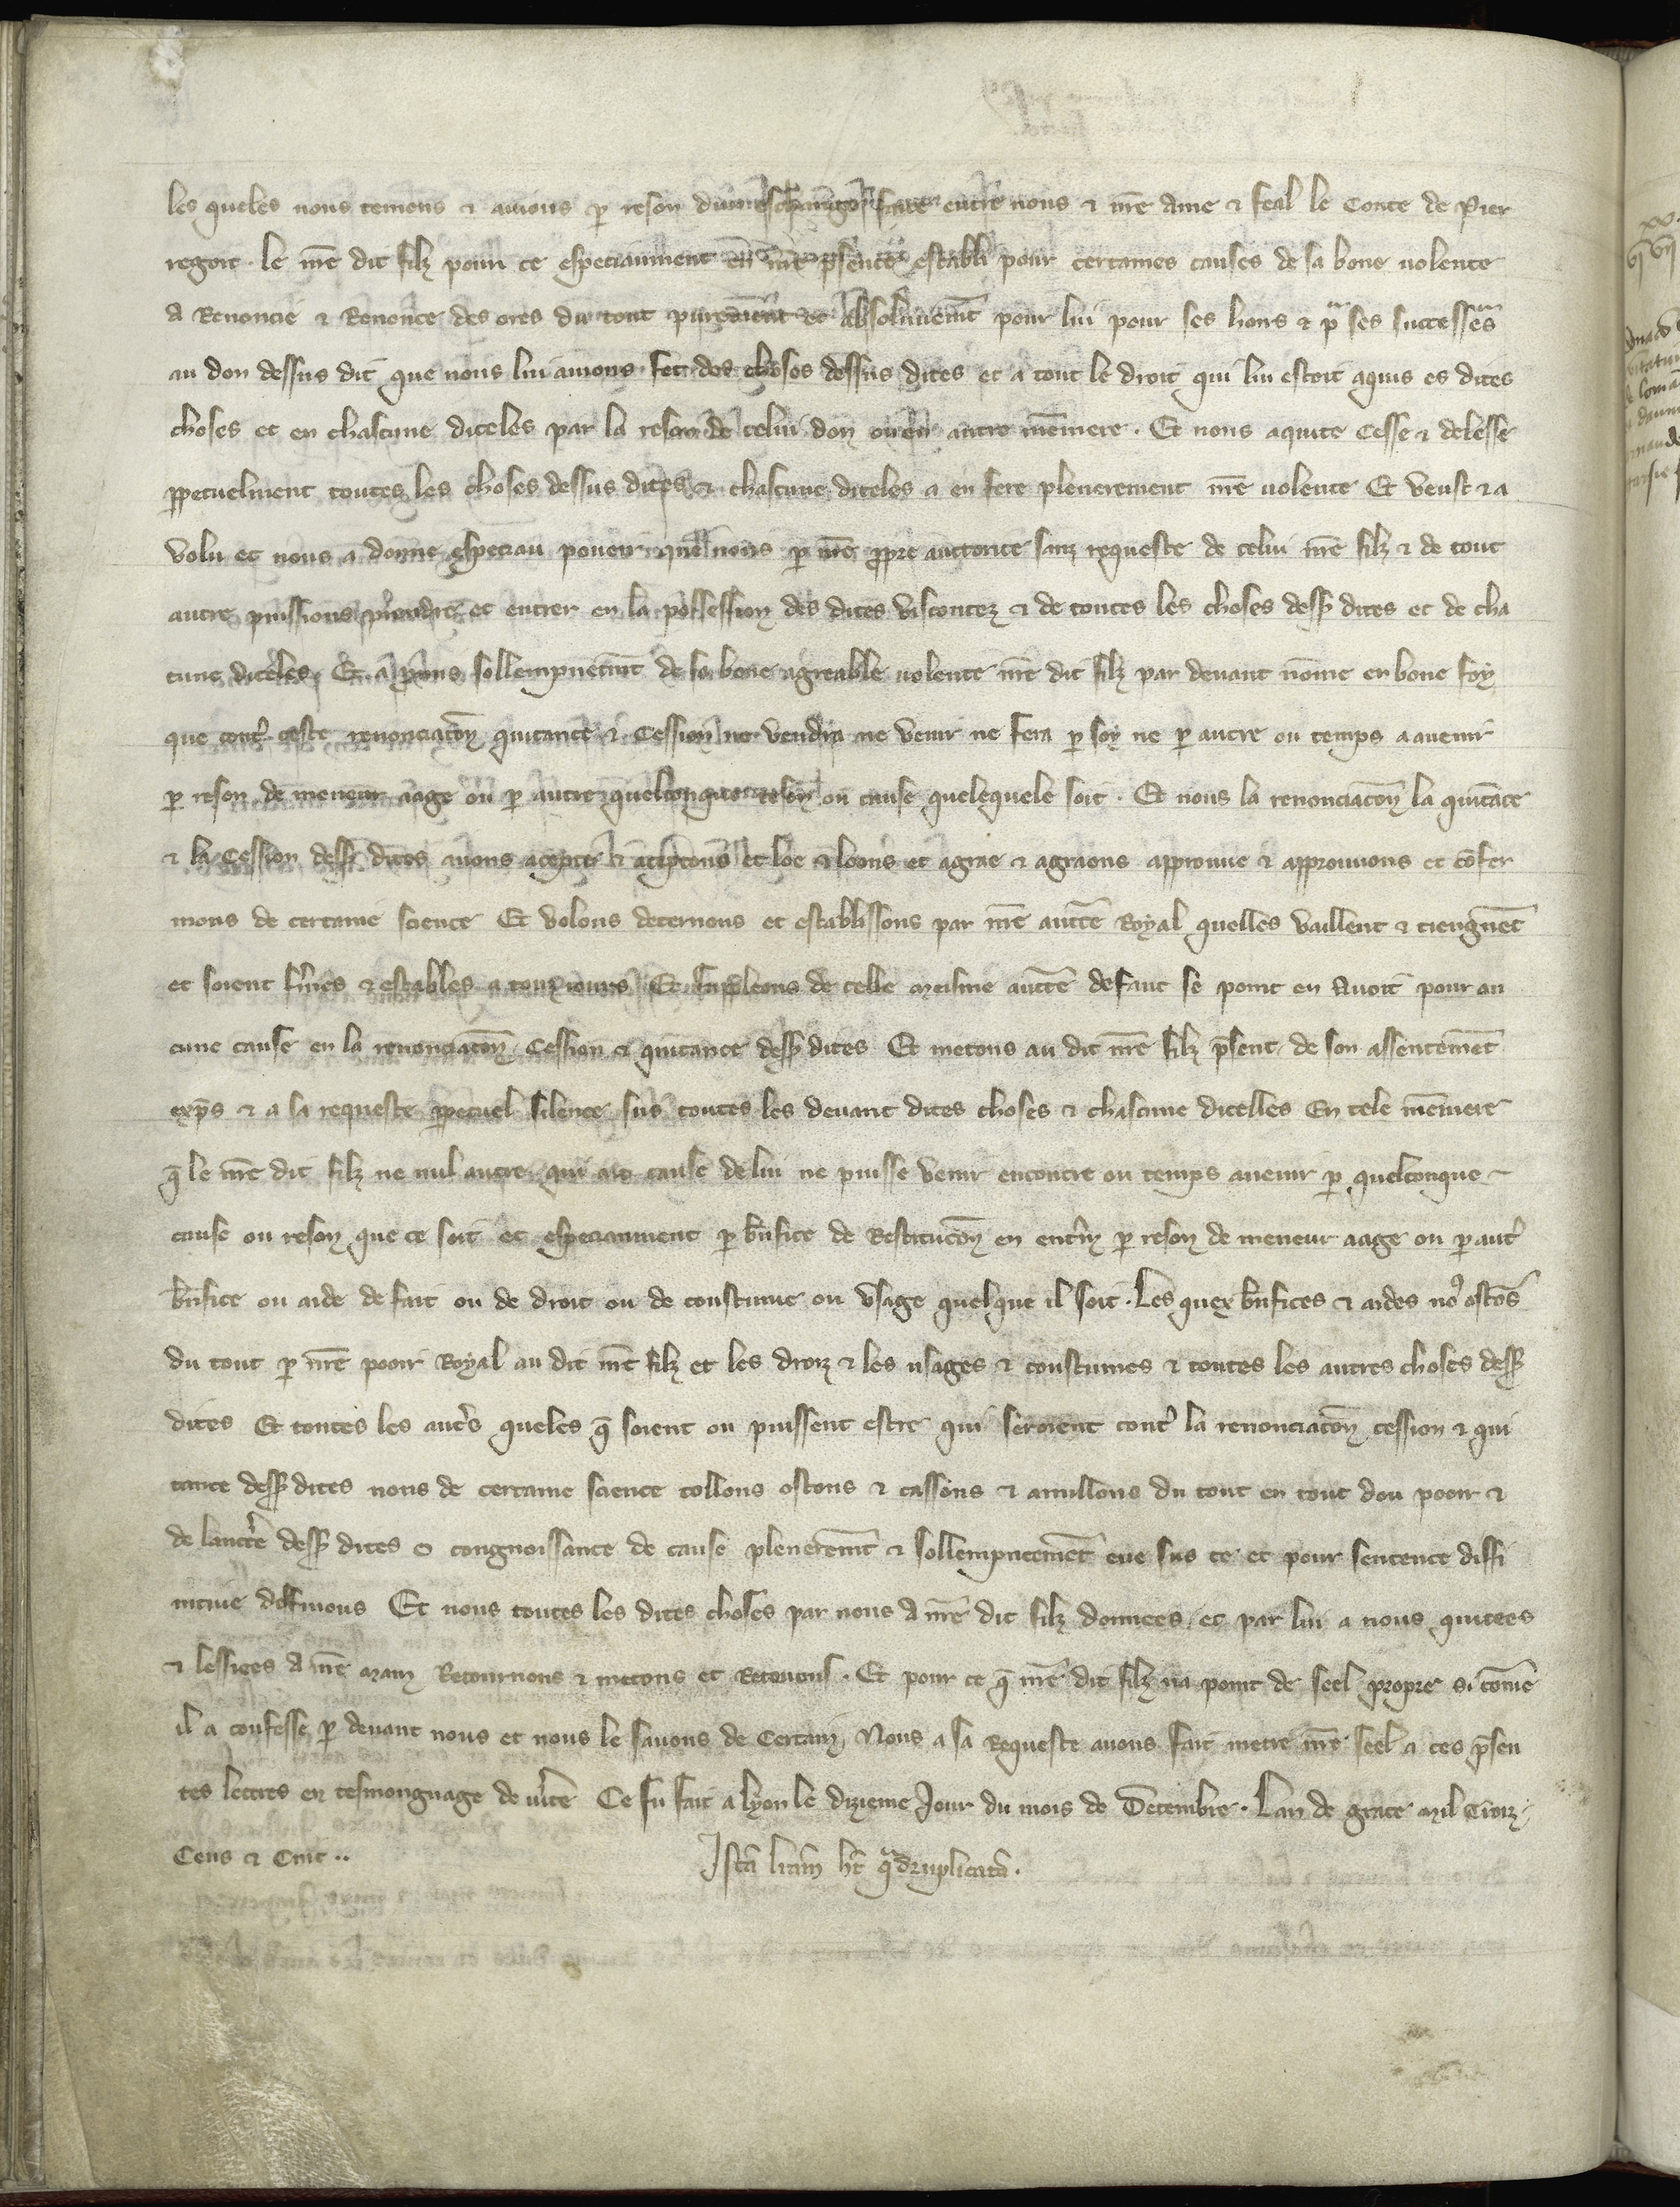 les queles nous tenions ⁊ avions p̱ reson dun eschange fait entre nous ⁊ nr̄e ame ⁊ feal le Conte de Pier
regort · le nr̄e dit filz pour ce especiaument en nr̄e p̄sence establi pour certaines causes de sa bone volente
A Renoncie ⁊ Renonce des ores du tout purem̄t et absoluem̄t pour lui pour ses hoirs ⁊ pͬ ses successeͬs
au don dessus dit que nous lui avions fet des choses dessus dites et a tout le droit qui lui estoit aquis es dites
choses et en chascune diceles par la reson de celui don ou en autre meniere · Et nous aquite Cesse ⁊ delesse
p̱petuelment toutes les choses dessus dites ⁊ chascune diceles a en fere plenerement nr̄e volente Et veust ⁊ a
volu et nous a donne especiau poueir que nous p̱ nr̄e p̱pre auctorite sanz requeste de celui nr̄e filz ⁊ de tout
autre puissions prendre et entrer en la possession des dites viscontez ⁊ de toutes les choses dess̄ dites et de cha
cune diceles Et a promis sollempnem̄t de sa bone agreable volente nr̄e dit filz par devant nous en bone foy
que contͬ ceste renonciac̄on quitance ⁊ Cession ne vendra ne venir ne fera p̱ soy ne p̱ autre ou temps a avenir
p̱ reson de meneur aage ou p̱ autre quelconque reson ou cause quelequele soit · Et nous la renonciac̄on la quitāce
⁊ la Cession dess̄ dites avons acepte ⁊ aceptons et loe ⁊ loons et agrae ⁊ agraons approuve ⁊ approuvons et cōfer
mons de certaine science Et volons decernons et establissons par nr̄e auct̄e Royal quelles vaillent ⁊ tiengnēt
et soient fermes ⁊ estables a touz iours Et supleons de celle meisme auct̄e defaut se point en Avoit pour au
cune cause en la renonciac̄on Cession ⁊ quitance dess̄ dites Et metons au dit nr̄e filz p̄sent de son assentemēt
exp̄s ⁊ a sa requeste p̱petuel silence sus toutes les devant dites choses ⁊ chascune dicelles En tele meniere
q̄ le nr̄e dit filz ne nul autre qui ait cause de lui ne puisse venir encontre ou temps avenir p̱ quelconque
cause ou reson que ce soit et especiaument p̱ bn̄fice de Restituc̄on en entͥn p̱ reson de meneur aage ou p̱ autͬ
bn̄fice ou aide de fait ou de droit ou de coustume ou usage quelque il soit · Les quex bn̄fices ⁊ aides noꝰ ostōs
du tout p̱ nr̄e pooir Royal au dit nr̄e filz et les droiz ⁊ les usages ⁊ coustumes ⁊ toutes les autres choses dess̄
dites Et toutes les autͬs queles q̄ soient ou puissent estre qui seroient contͬ la renonciac̄on cession ⁊ qui
tance dess̄ dites nous de certaine science tollons ostons ⁊ cassons ⁊ anullons du tout en tout dou pooir ⁊
de lauct̄e dess̄ dites o congnoissance de cause plenerem̄t ⁊ sollempnemēt eue sus ce et pour sentence diffi
nitive Et nous toutes les dites choses par nous A nr̄e dit filz donnees et par lui a nous quitees
⁊ lessiees A nr̄e main Retournons ⁊ metons et Retenons · Et pour ce q̄ nr̄e dit filz na point de seel propre si cōme
il a confesse p̱ devant nous et nous le savons de Certain Nous a sa Requeste avons fait metre nr̄e seel a ces p̄sen
tes lettres en tesmongnage de vͥte Ce fu fait a lyon le dizieme Jour du mois de Decembre · Lan de grace mil Troiz
Cens ⁊ Cinc ··
Istā litām ht̄ qͣdruplicatā ·